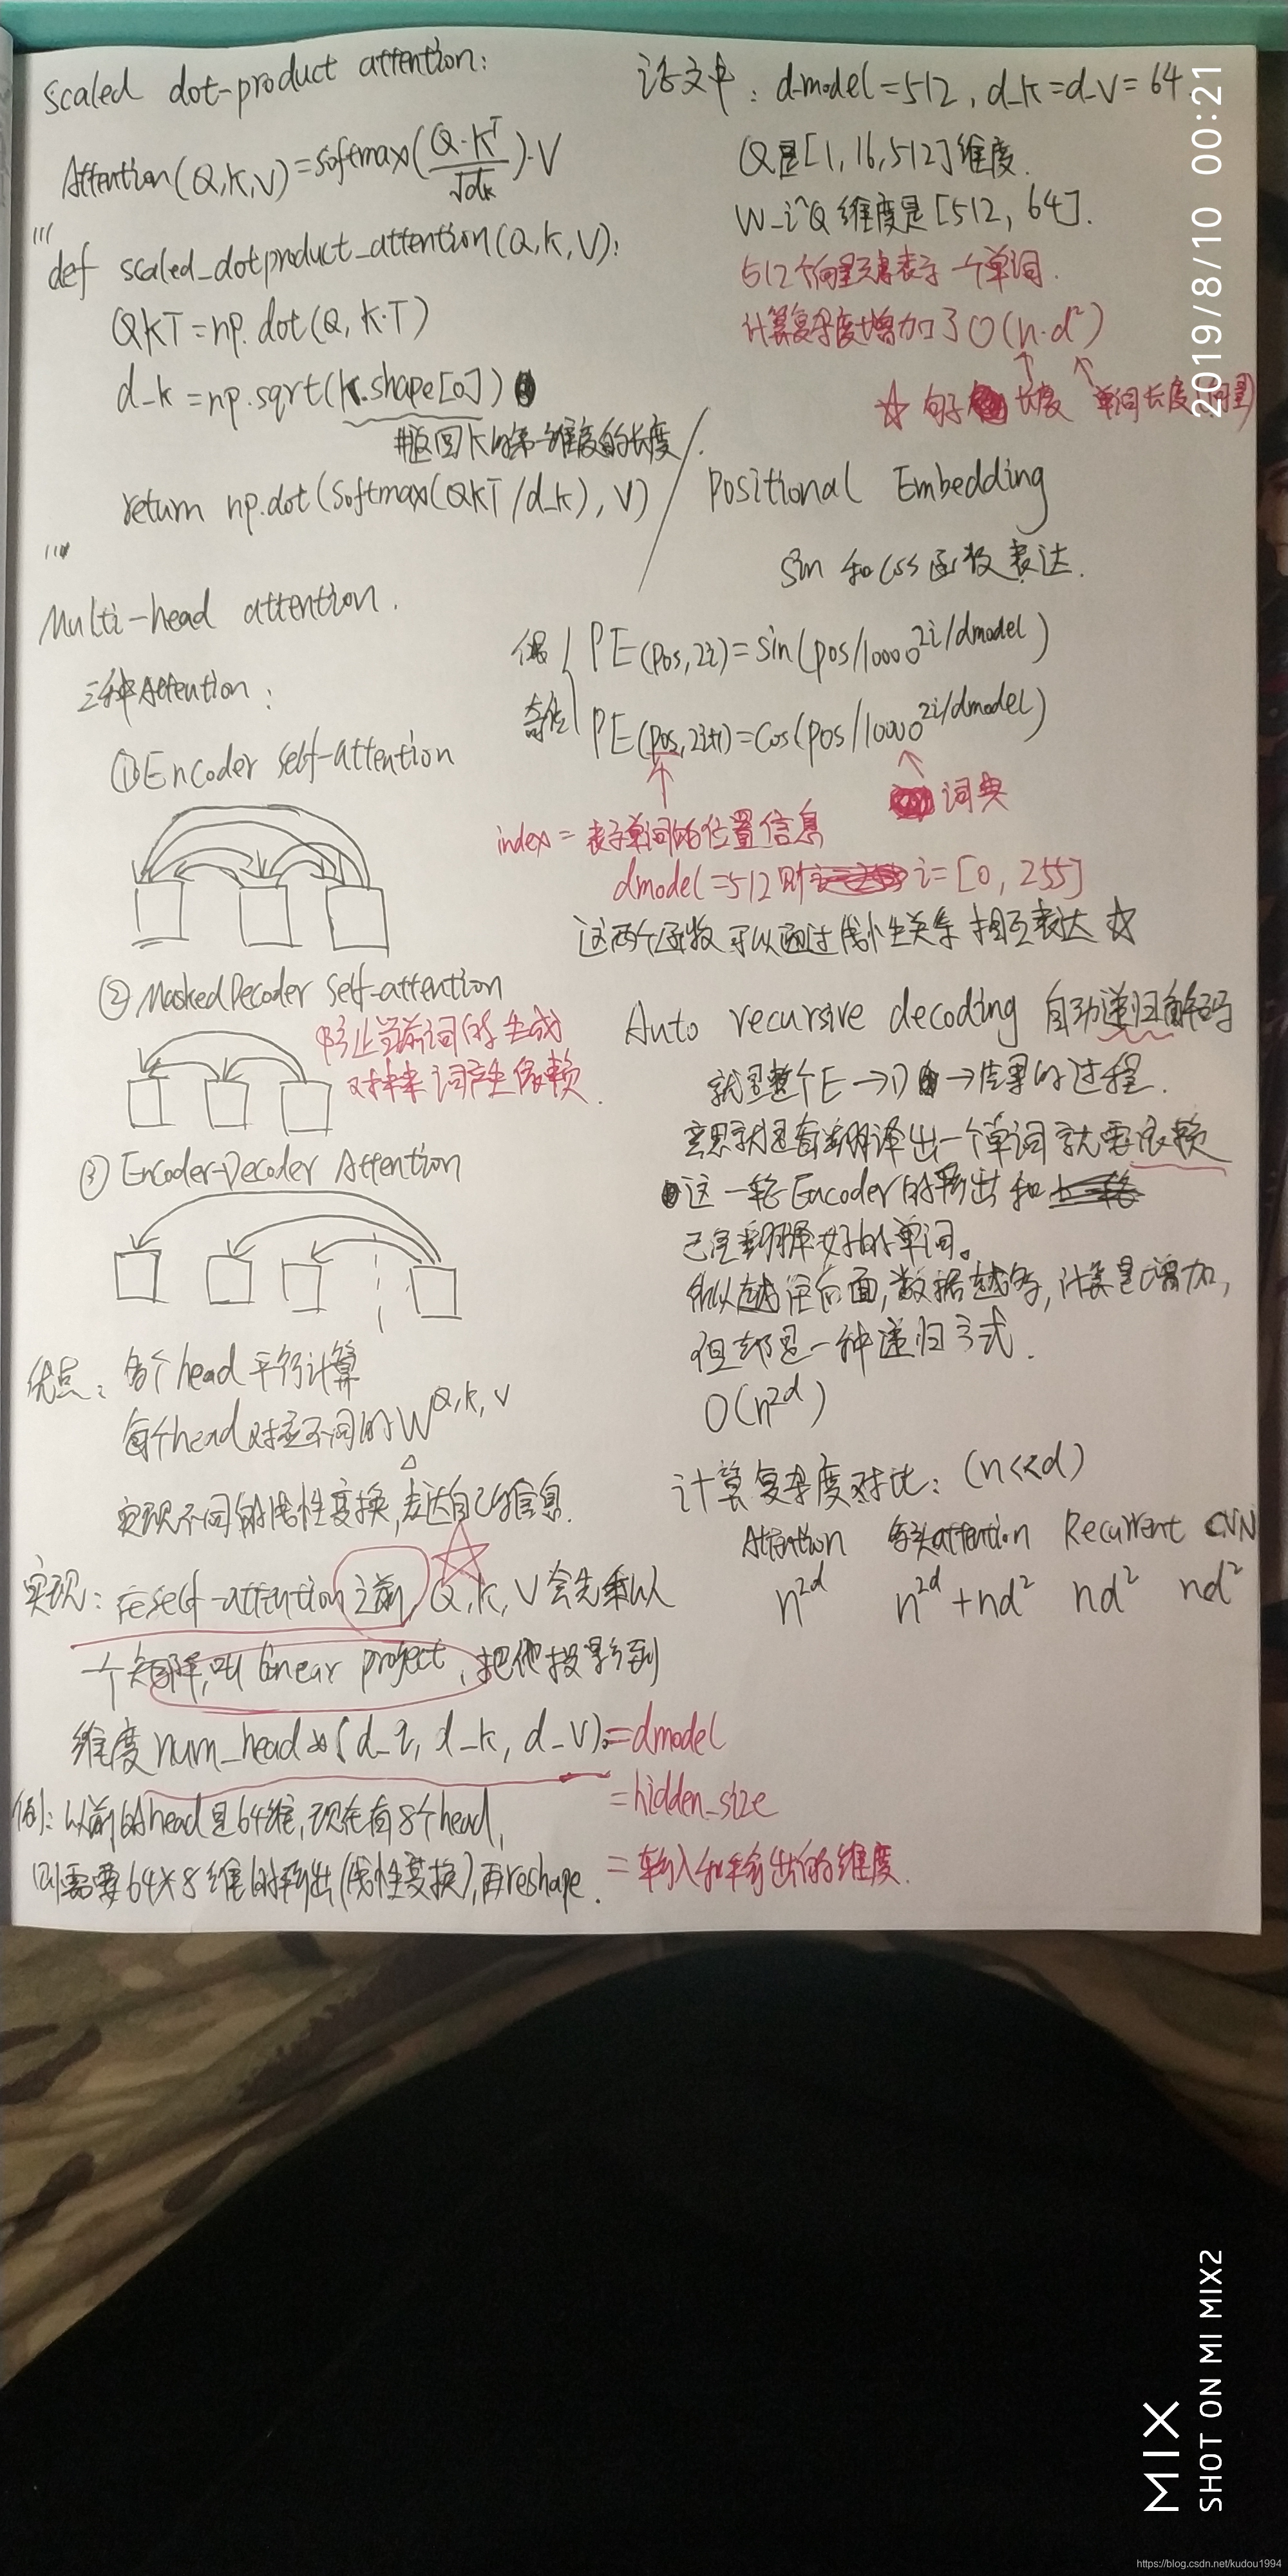 Scaled dot-product attention:
Attention(Q,K,V)=softmax(Q·K^T/√dk)·V
'''
def scaled_dotproduct_attention(Q,K,V):
QKT=np.dot(Q,K.T)
d_k=np.sqrt(K.shape[0])
#返回K的第一维度的长度
return np.dot(softmax(QKT/d_k),V)
'''
Multi-head attention.
三种Attention:
①Encoder self-attention
②Masked Decoder self-attention
防止当前词的生成
对未来词产生依赖.
③Encoder-Decoder Attention
优点: 多个head平行计算
每个head对应不同的W^Q,K,V
实现不同的线性变换,表达自己的信息.
实现: 在self-attention之前, Q,K,V会先乘以
一个矩阵,叫linear project,把他投影到
维度num_head*(d_q, d_k, d_v).=dmodel
=hidden_size
例: 以前的head是64维,现在有8个head,
则需要64*8维的输出(线性变换),再reshape.
=输入和输出的维度.
论文中: d_model=512, d_k=d_v=64.
Q是[1,16,512]维度.
W_i^Q维度是[512,64].
512个向量元素表示一个单词.
计算复杂度增加了O(n·d²)
☆句子长度 单词长度(向量)
Positional Embedding
sin和cos函数表达.
偶 PE(pos,2i)=sin(pos/10000^2i/dmodel)
奇位 PE(pos,2i+1)=cos(pos/10000^2i/dmodel)
词典
index=表示单词的位置信息
dmodel=512则 i=[0, 255]
这两个函数可以通过线性关系相互表达☆
Auto recursive decoding 自动递归解码
就是整个E→D→结果的过程.
意思就是每翻译出一个单词就要依赖
这一轮Encoder的输出和
已经翻译好的单词。
所以越往后面,数据越多,计算量增加,
但都是一种递归方式.
O(n^2d)
计算复杂度对比: (n<<d)
Attention 多头attention Recurrent CNN
n^2d n^2d+nd² nd² nd²
2019/8/10 00:21
MIX
SHOT ON MI MIX2
https://blog.csdn.net/kudou1994